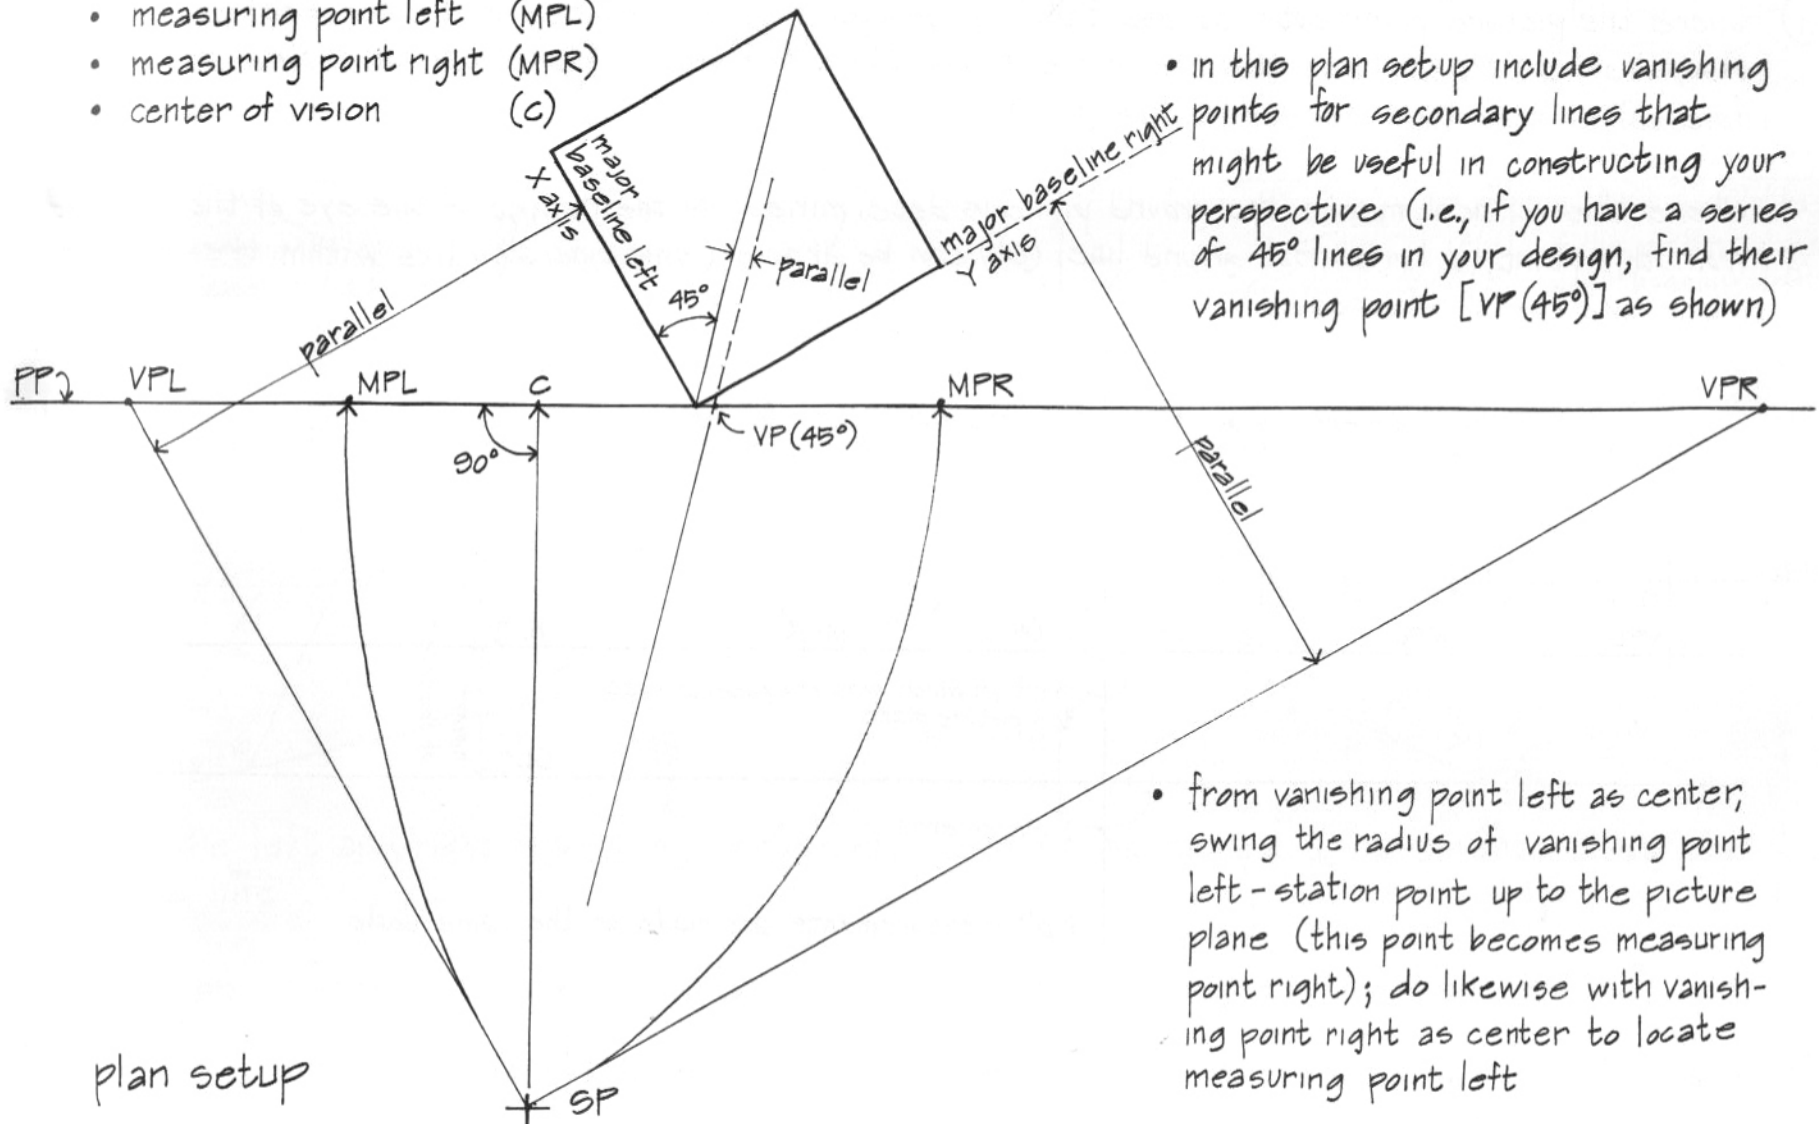 • measuring point left (MPL)
• measuring point right (MPR)
• center of vision (C)
• in this plan setup include vanishing
points for secondary lines that
might be useful in constructing your
perspective. (i.e., if you have a series
of 45° lines in your design, find their
vanishing point [VP (45°)] as shown)
major
baseline left
X axis
major baseline right
Y axis
45°
parallel
parallel
PP
VPL
MPL
C
MPR
VPR
90°
VP (45°)
parallel
• from vanishing point left as center,
swing the radius of vanishing point
left - station point up to the picture
plane (this point becomes measuring
point right); do likewise with vanish-
ing point right as center to locate
measuring point left
plan setup
SP